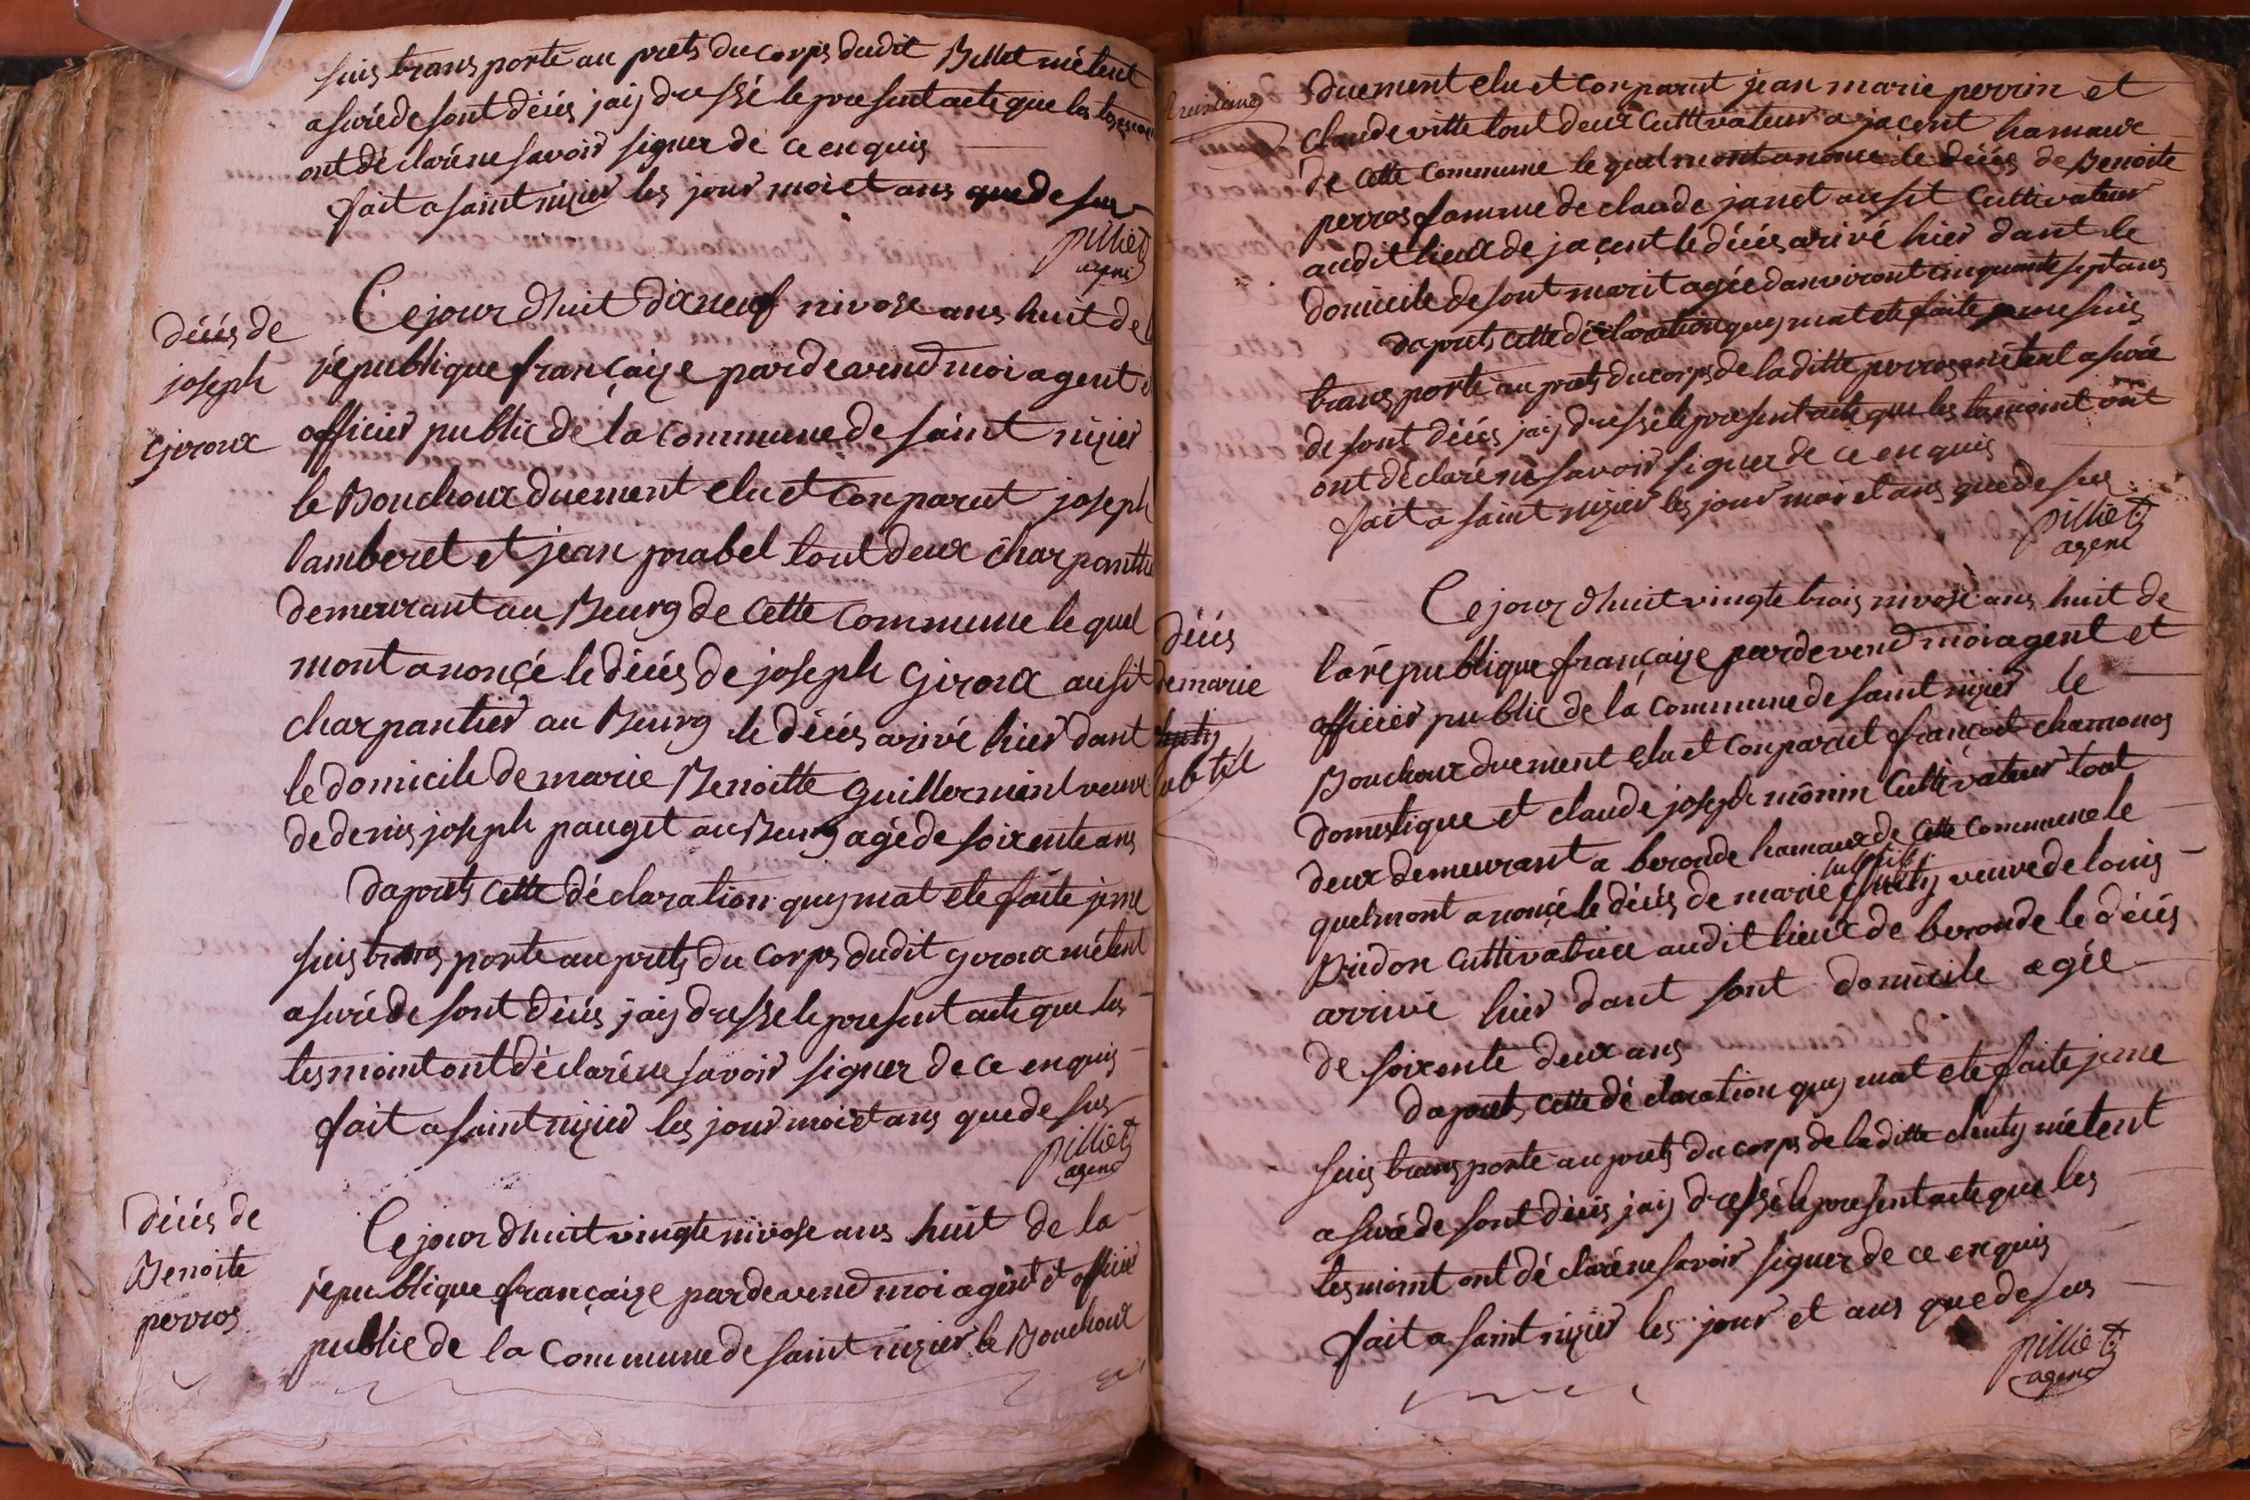 suis trans porté au prets du corps dudit Billet métent
asuré de sont déces jaij dressé le present acte que les
ont déclaré ne savoir signer de ce enquis
fait a saint nizier les jour moi et ans que de sus
pilliet
agent
décés de
joseph
Giroux
Ce jour dhuit dix neuf nivose ans huit de
république françaize par devend moi agent
officier public de la commune de saint nizier
le Bouchoux duement elu et conparut joseph
lamberet et jean prabel tout deux charpantie
demeurant au Beurg de cette commune le quel
mont anonçé le décés de joseph Giroux ausit
charpantier au Beurg le décés arivé hier dant
le domicile de marie Benoitte Guillerminl veuve
de denis joseph pauget au Beurg agé de soixente ans
daprets cette déclaration quy mat ete faite je me
suis trans porte au prets du corps dudit giroux métent
asuré de sont décés jaij dresse le present acte que les
tesmoint ont déclaré ne savoir signer de ce enquis
fait a saint nizier les jour moi et ans que de sus
pilliet
agent
décés de
Benoite
perros
Ce jour dhuit vingte nivose ans huit de la
république françaize par devend moi agent et officier
public de la commune de saint nizier le Bouchoux
duement elu et conparut jean marie perrin et
claude vitte tout deux cultivateur a jacent hamaux
de cette commune le quel mont anonce le décés de Benoite
perros famme de claude janet ausit cultivateur
audit lieux de jacent le décés arivé hier dant le
domicile de sont marit agée danviront cinquante sept ans
daprets cette déclaration quy mat ete faite je me suis
trans porte au prets du corps de laditte perros métent asuré
de sont décés jaij dressé le present acte que les tesmoint ont
ont déclaré ne savoir signer de ce enquis
fait a saint nizier les jour moi et ans que de sus
pilliet
agent
décés
de marie
chuty
subtil
Ce jour dhuit vingte trois nivose ans huit de
la république françaize par devend moi agent et
officier public de la commune de saint nizier le
Bouchoux duement elu et conparut françoit chamonos
domestique et claude joseph monin cultivateur tout
deux demeurant a beronde hamaux de cette commune le
quel mont anonçé le décés de marie chuty subtil veuve de louis
Bridon cultivatrice audit lieux de beronde le décés
arrivé hier dant sont domicile agée
de soixente deux ans
daprets cette dé claration quy mat ete faite je me
suis trans porté au prets du corps de laditte chuty métent
asuré de sont décés jaij dressé le present acte que les
tesmoint ont dé claré ne savoir signer de ce enquis
fait a saint nizier les jour et ans que de sus
pilliet
agent